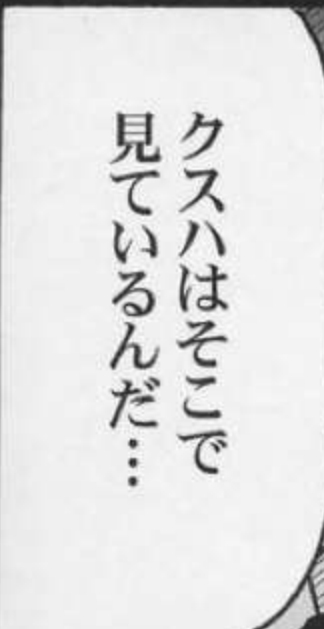 クスハはそこで
見ているんだ…